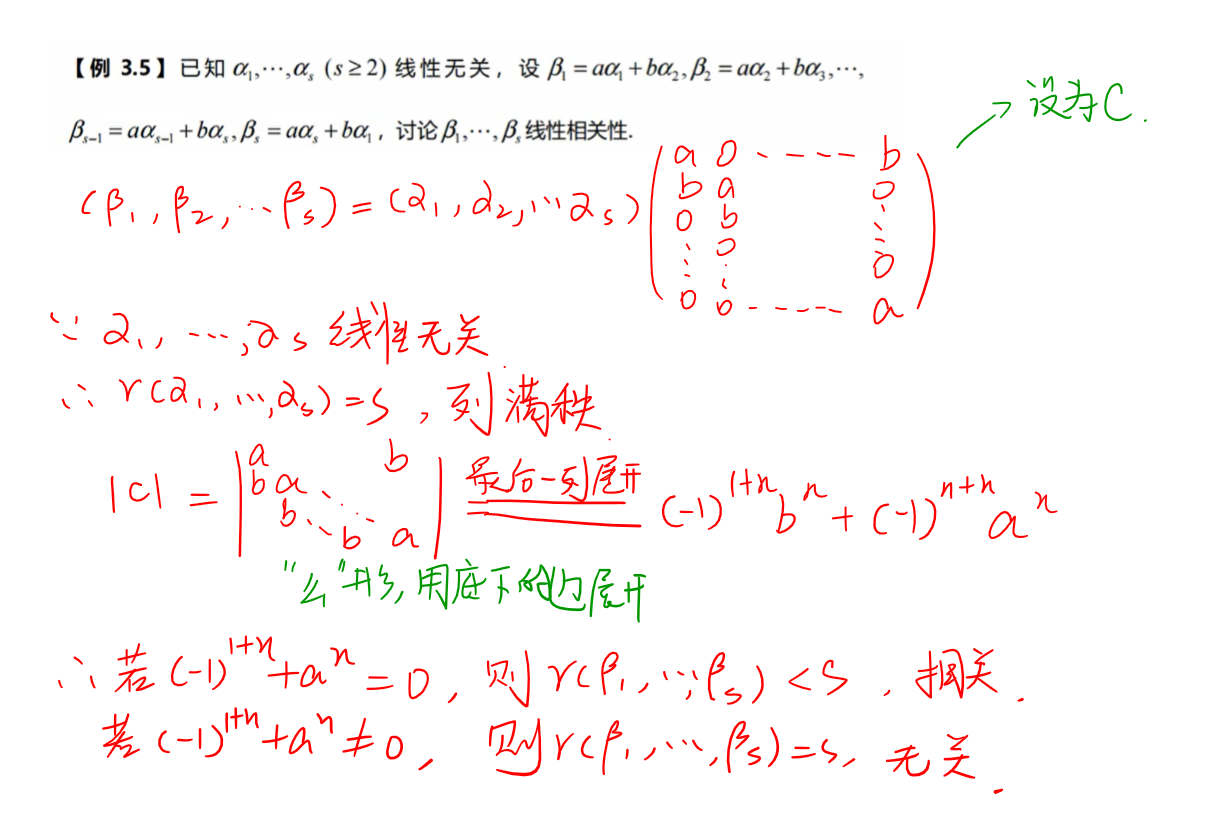 【例 3.5】已知 α₁,⋯,αₛ (s≥2) 线性无关，设 β₁=aα₁+bα₂,β₂=aα₂+bα₃,⋯,
βₛ₋₁=aαₛ₋₁+bαₛ,βₛ=aαₛ+bα₁，讨论β₁,⋯,βₛ线性相关性.
→设为C.
(β₁,β₂,⋯βₛ)=(α₁,α₂,⋯αₛ)
a 0 ----- b
b a 0
0 b ⋮
⋮ 0 0
0 0 ----- a
∵ α₁,⋯,αₛ 线性无关
∴ r(α₁,⋯,αₛ)=s，列满秩
|C| = |a b b a ⋱ b ⋱ ⋯ b a| 最后一列展开 (-1)¹⁺ⁿbⁿ+(-1)ⁿ⁺ⁿaⁿ
"么"形,用底下的边展开
∴ 若(-1)¹⁺ⁿ+aⁿ=0，则r(β₁,⋯,βₛ)<s，相关.
若(-1)¹⁺ⁿ+aⁿ≠0，则r(β₁,⋯,βₛ)=s，无关.